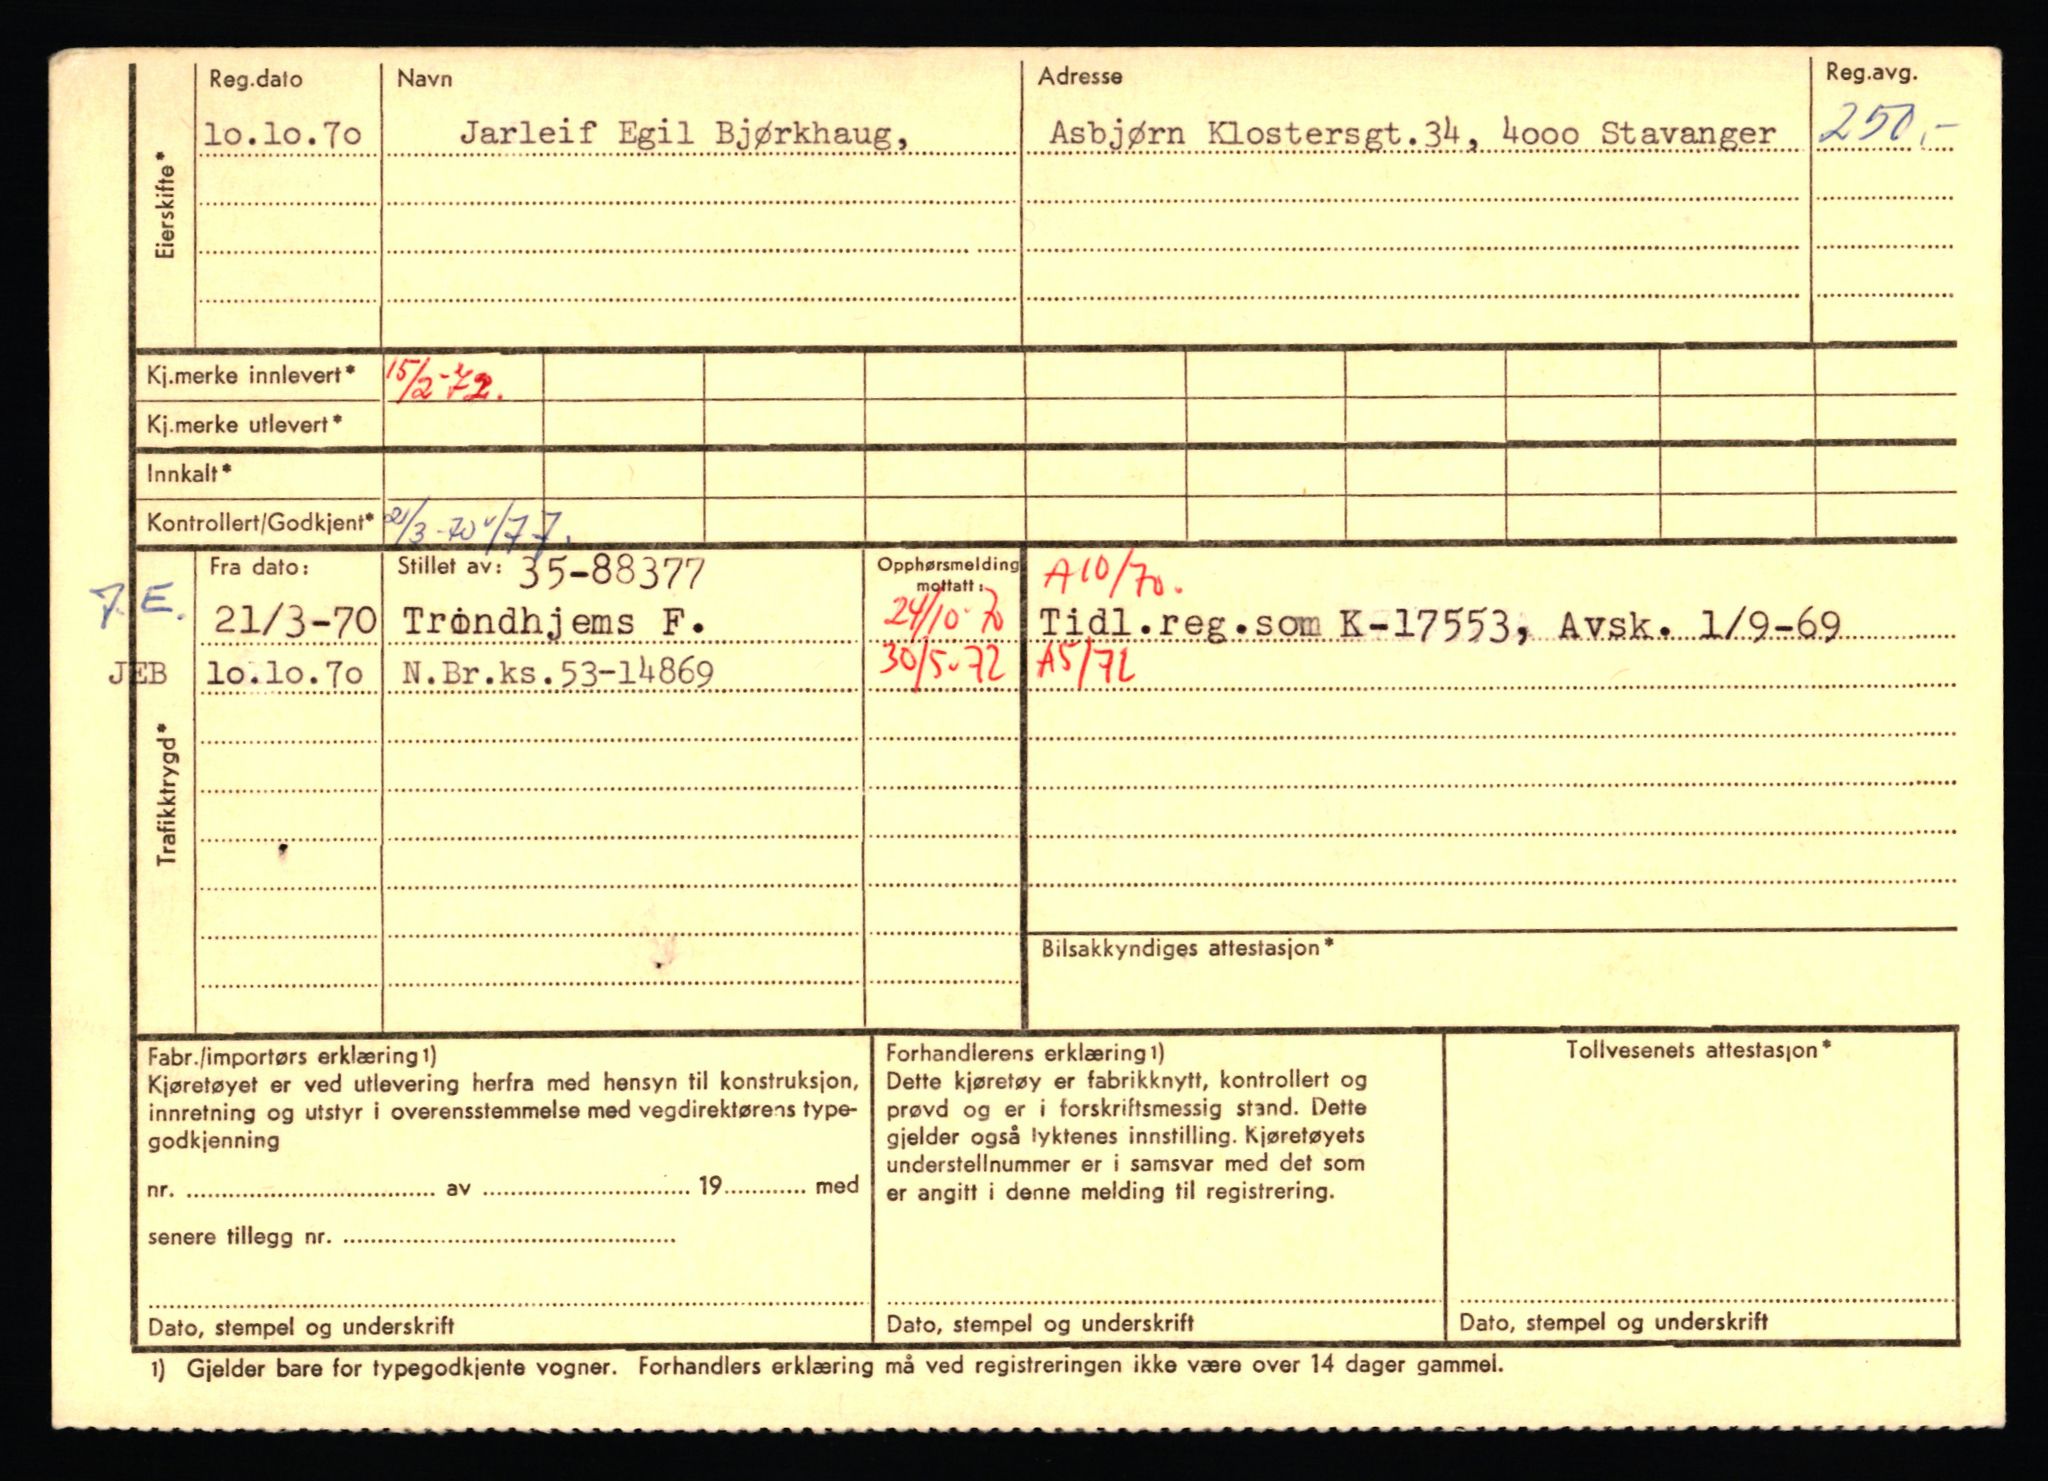 Reg.dato Navn Adresse Reg.avg.
Eierskifte*
10.10.70 Jarleif Egil Bjørkhaug, Asbjørn Klostersgt.34, 4000 Stavanger 250,-
Kj.merke innlevert* 15/2-72.
Kj.merke utlevert*
Innkalt*
Kontrollert/Godkjent* 21/3-70
Trafikktrygd*
Fra dato: Stillet av: 35-88377 Opphørsmelding mottatt: A10/70.
J.E. 21/3-70 Trondhjems F. 24/10-70 Tidl.reg.som K-17553, Avsk. 1/9-69
JEB 10.10.70 N.Br.ks.53-14869 30/5-72 A5/72
Bilsakkyndiges attestasjon*
Fabr./importørs erklæring 1)
Kjøretøyet er ved utlevering herfra med hensyn til konstruksjon,
innretning og utstyr i overensstemmelse med vegdirektørens type-
godkjenning
nr. .......... av .......... 19.......... med
senere tillegg nr. ..........
Dato, stempel og underskrift
Forhandlerens erklæring 1)
Dette kjøretøy er fabrikknytt, kontrollert og
prøvd og er i forskriftsmessig stand. Dette
gjelder også lyktenes innstilling. Kjøretøyets
understellnummer er i samsvar med det som
er angitt i denne melding til registrering.
Dato, stempel og underskrift
Tollvesenets attestasjon*
Dato, stempel og underskrift
1) Gjelder bare for typegodkjente vogner. Forhandlers erklæring må ved registreringen ikke være over 14 dager gammel.